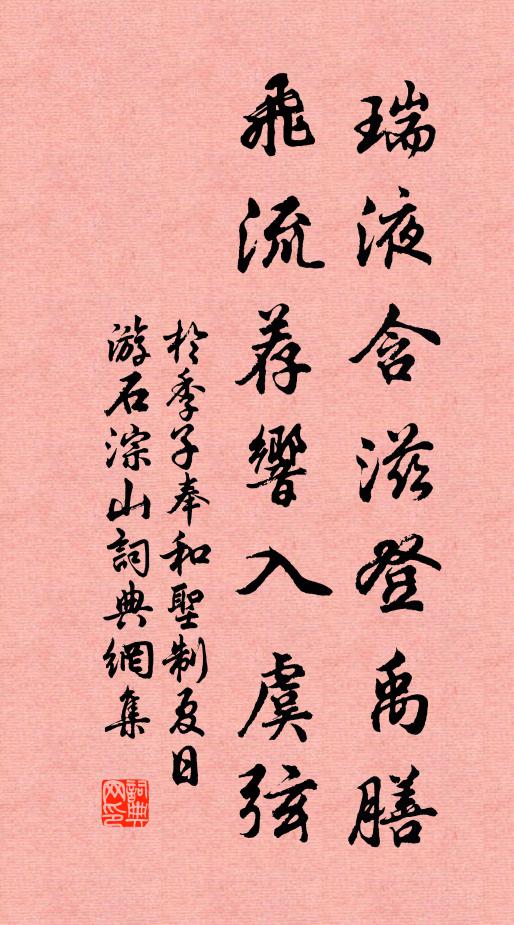 瑞液含滋登禹膳
飛流荐響入虞弦
於季子奉和聖制夏日
游石淙山詞典網集
詞典網印